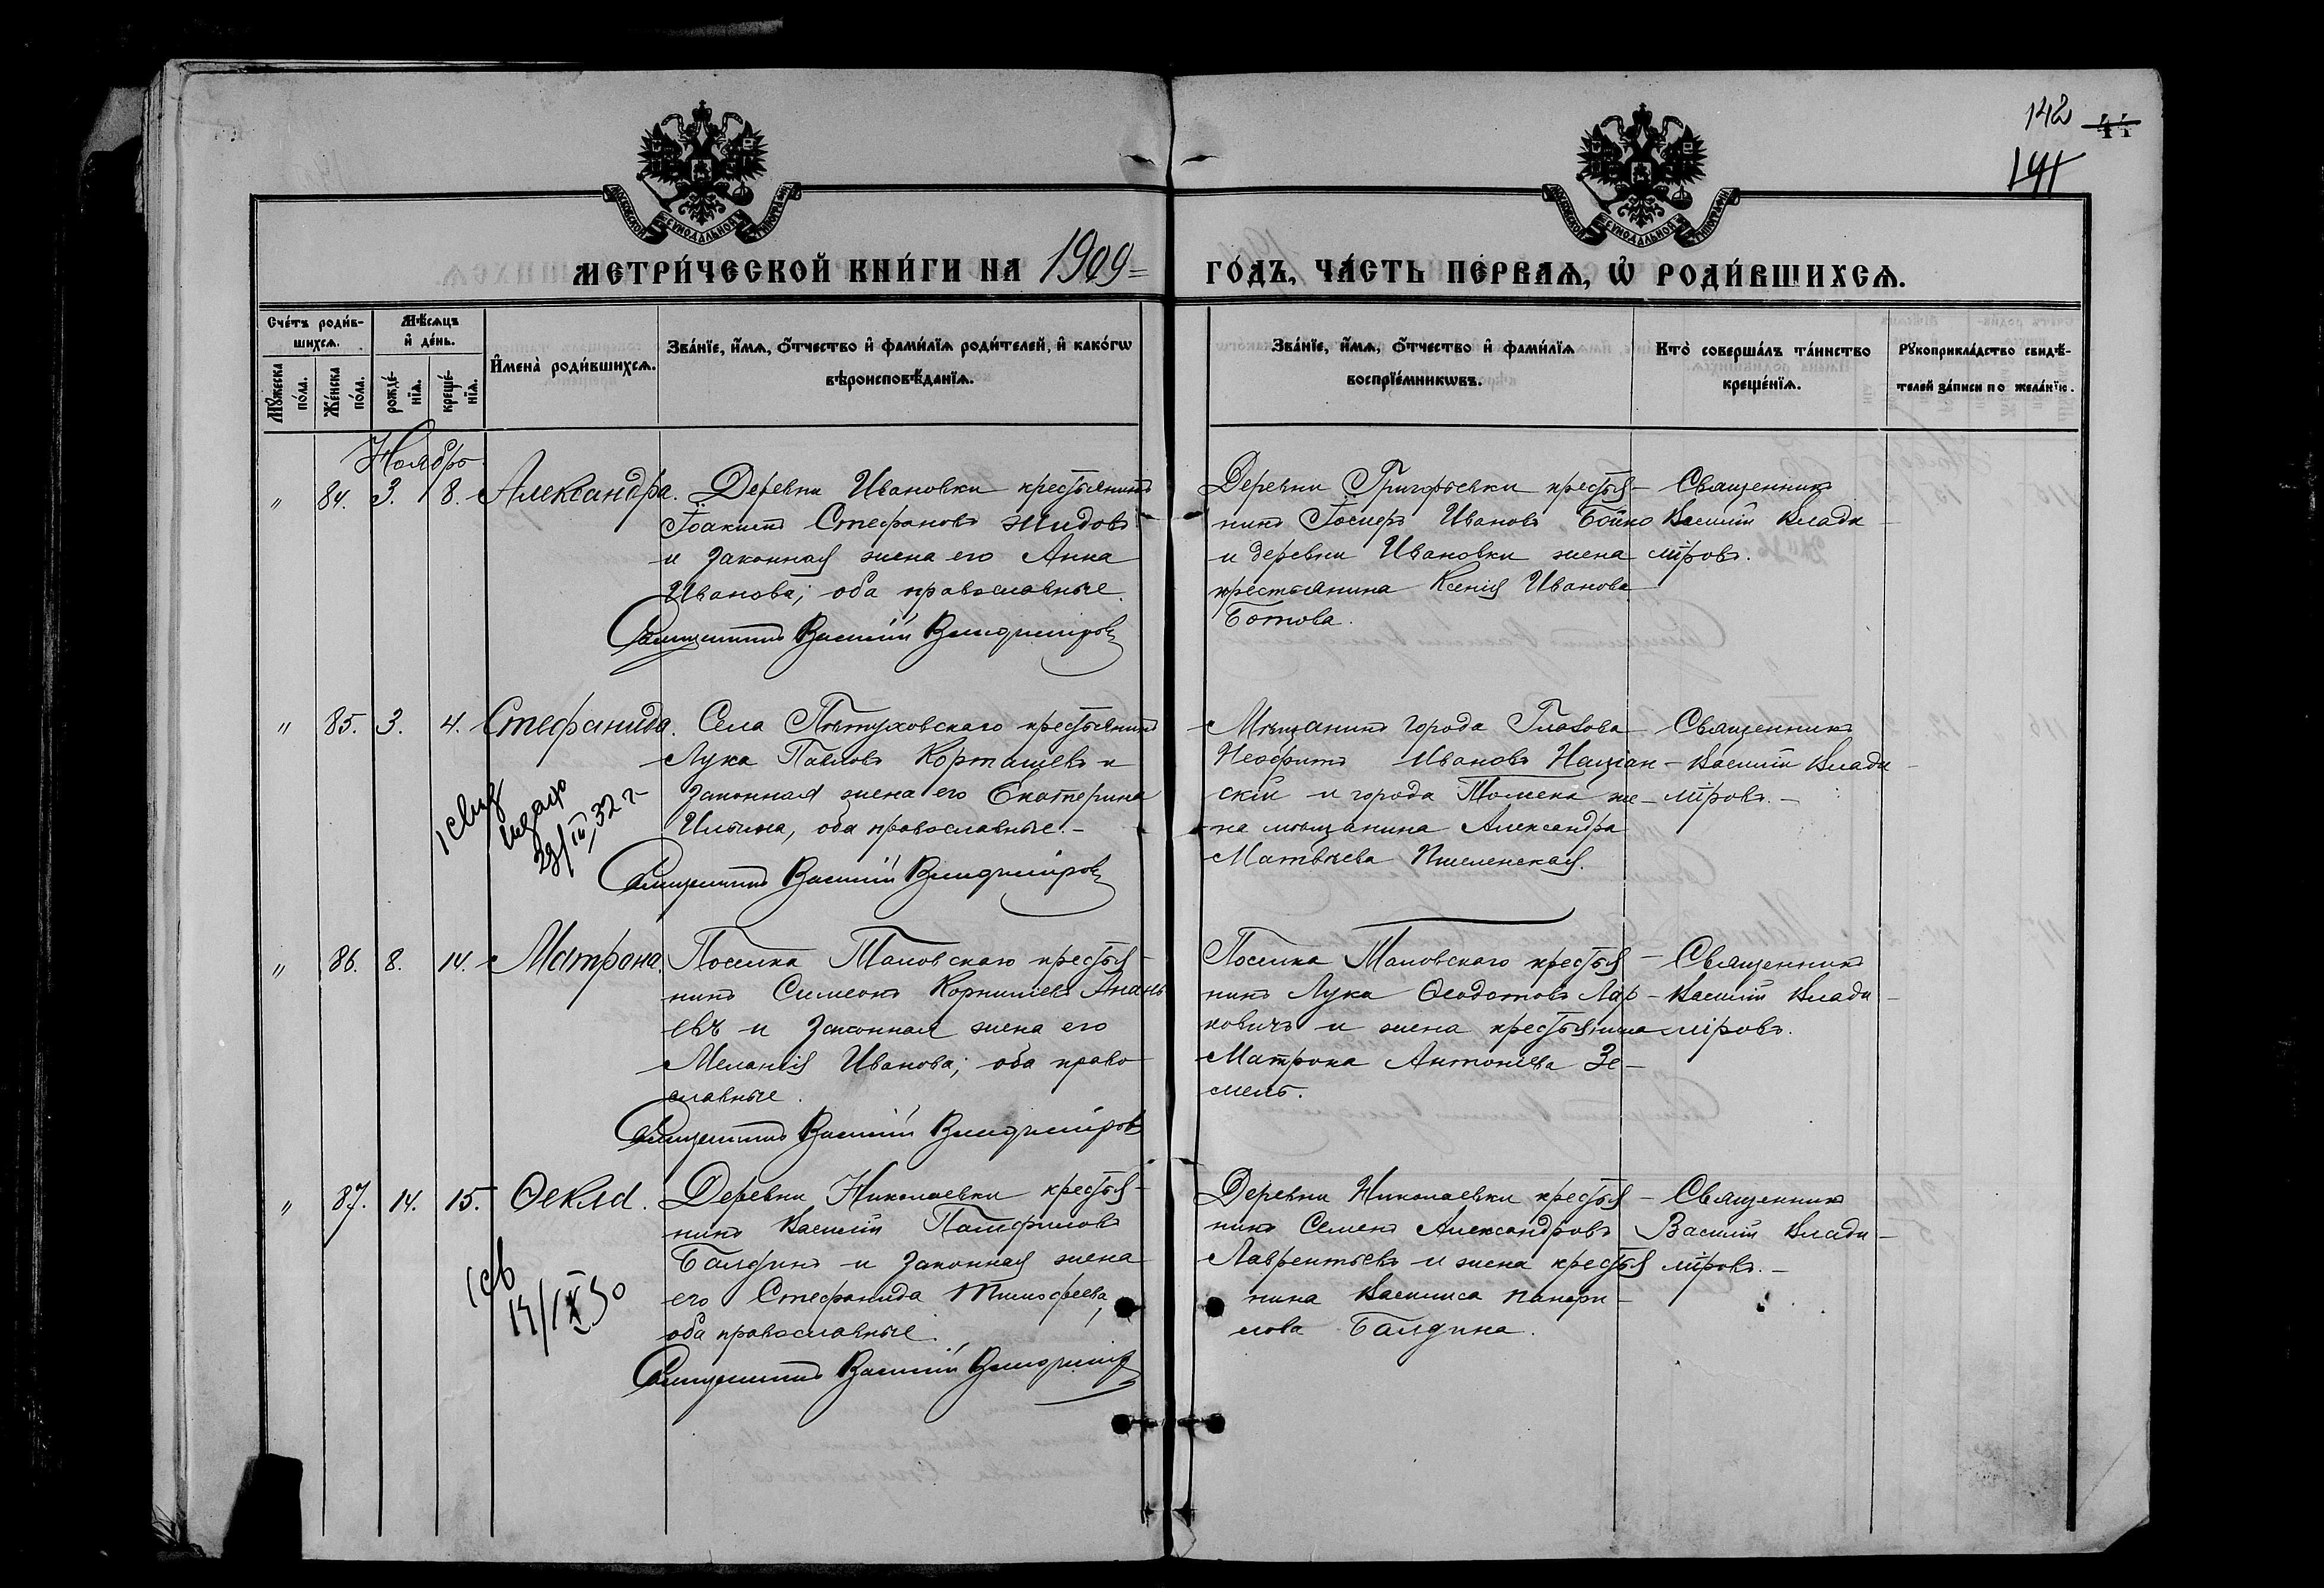 142 44
141
МОСКОВСКОЙ СѴНОДАЛЬНОЙ ТИПОГРАФІИ
МОСКОВСКОЙ СѴНОДАЛЬНОЙ ТИПОГРАФІИ
МЕТРИ́ЧЕСКОЙ КНИ́ГИ НА 1909 =
ГО́ДЪ, ЧА́СТЬ ПЕ́РВАѦ, Ѡ҆ РОДИ́ВШИХСѦ.
Сче́тъ роди́в-
шихсѧ.
Мѣ́сѧцъ
и҆ де́нь.
Мꙋ́жеска
по́ла.
Же́нска
по́ла.
рожде́-
нїѧ.
креще́-
нїѧ.
И҆мена̀ роди́вшихсѧ.
Зва́нїе, и҆́мѧ, ѻ҆́тчество и҆ фами́лїѧ роди́телей, и҆ како́гѡ
вѣроисповѣ́данїѧ.
Зва́нїе, и҆́мѧ, ѻ҆́тчество и҆ фами́лїѧ
воспрїе́мникѡвъ.
Кто̀ соверша́лъ та́инство
креще́нїѧ.
Рꙋкоприкла́дство свидѣ́-
телей за́писи по жела́нїю.
Ноябрь
" 84. 3. 8. Александра.
Деревни Ивановки крестьянинъ
Іоакимъ Стефановъ Жидовъ
и законная жена его Анна
Иванова; оба православные.
Священникъ Василій Владиміровъ
Деревни Григорьевки крестья-
нинъ Іосифъ Ивановъ Бойко
и деревни Ивановки жена
крестьянина Ксенія Иванова
Ботова.
Священникъ
Василій Влади-
міровъ.
" 85. 3. 4. Стефанида.
1 свид
выдано
29/III 32 г-
Села Пѣтуховскаго крестьянинъ
Лука Павловъ Корташевъ и
законная жена его Екатерина
Ильина, оба православные.-
Священникъ Василій Владиміровъ
Мѣщанинъ города Глазова
Неофитъ Ивановъ
скій и города Тюмени же-
на мѣщанина Александра
Матвѣева
Священникъ
Василій Влади-
міровъ.-
" 86. 8. 14. Матрона.
Поселка Таловскаго крестья-
нинъ Симеонъ Корнилiевъ Анань
евъ и законная жена его
Меланія Иванова; оба право-
славные.
Священникъ Василій Владиміровъ
Поселка Таловскаго крестья-
нинъ Лука Ѳеодотовъ Лар-
ковичъ и жена крестьянина
Матрона Антоніева Зе-
мель.
Священникъ
Василій Влади-
міровъ.
" 87. 14. 15. Ѳекла.
1 св
14/IX 30
Деревни Николаевки крестья-
нинъ Василій Памфиловъ
Балдинъ и законная жена
его Стефанида Тимофеева,
оба православные.
Священникъ Василій Владиміровъ
Деревни Николаевки крестья-
нинъ Семенъ Александровъ
Лаврентьевъ и жена крестья
нина Василиса Панфи-
лова Балдина.
Священникъ
Василій Влади-
міровъ.-